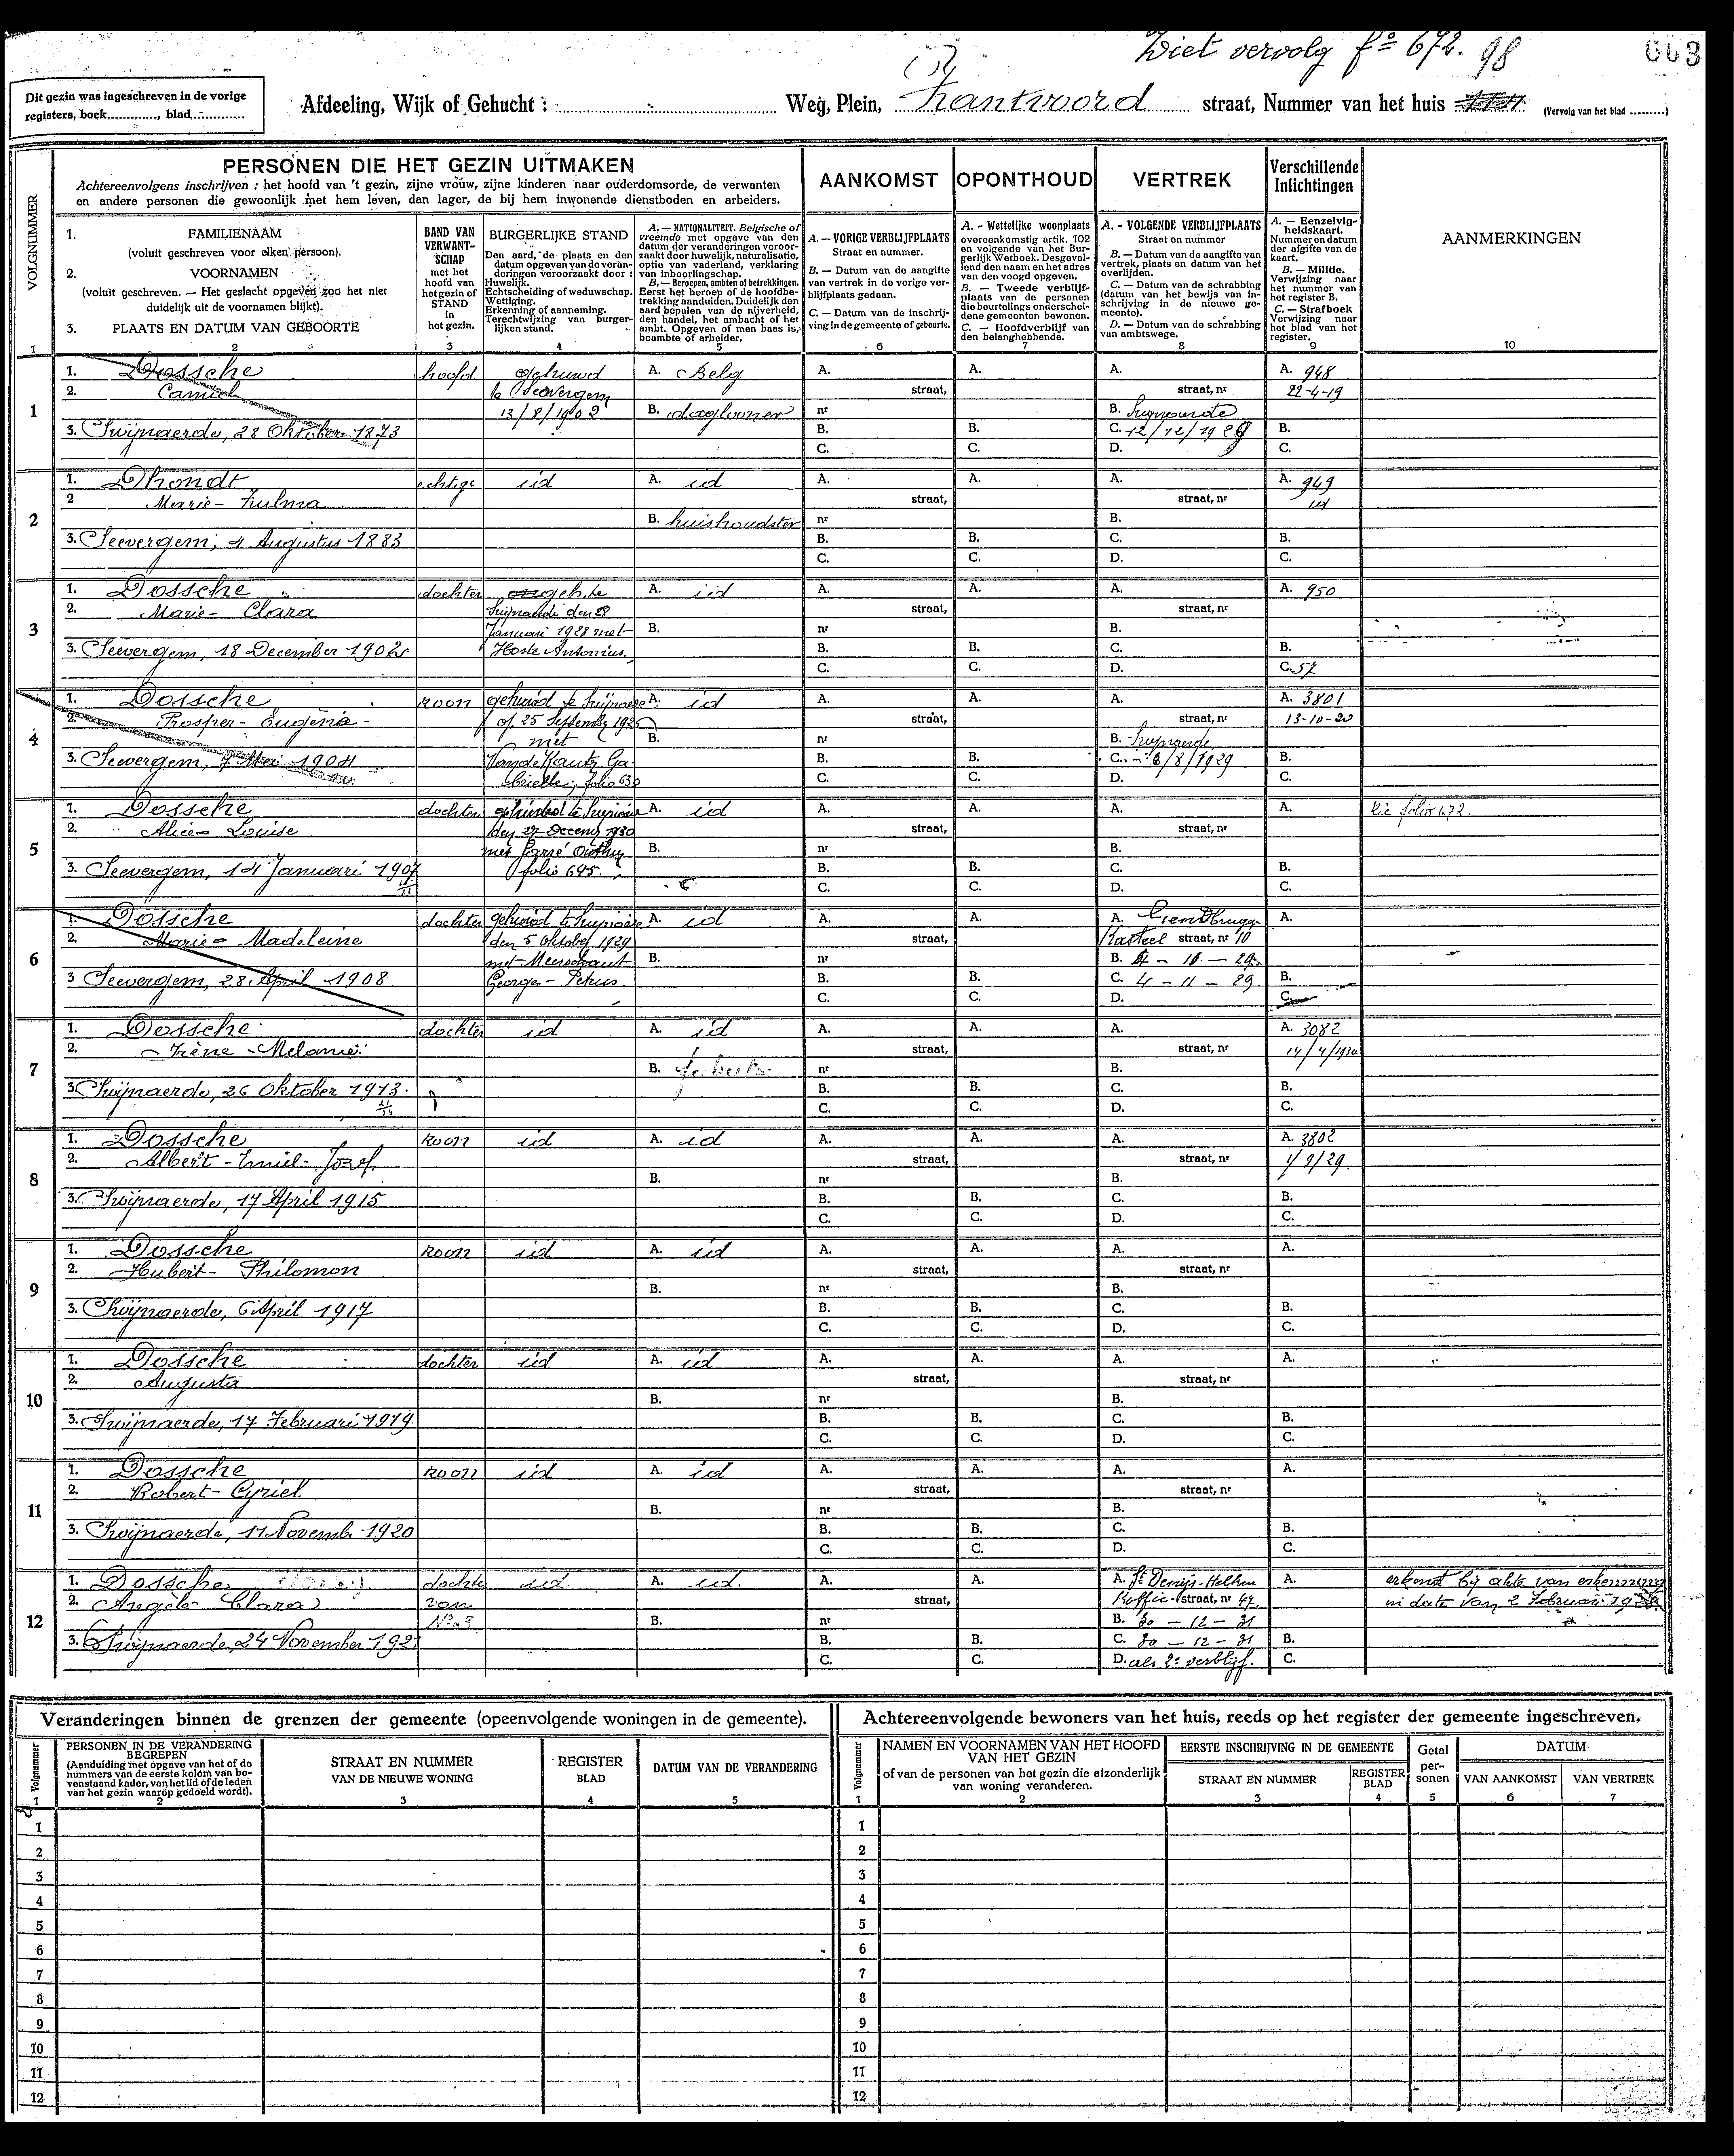 Ziet vervolg fº 672. 98
663
Dit gezin was ingeschreven in de vorige
registers, boek............, blad............
Afdeeling, Wijk of Gehucht :
Weg, Plein, Zantvoord straat, Nummer van het huis
(Vervolg van het blad .........)
VOLGNUMMER
PERSONEN DIE HET GEZIN UITMAKEN
Achtereenvolgens inschrijven : het hoofd van 't gezin, zijne vrouw, zijne kinderen naar ouderdomsorde, de verwanten
en andere personen die gewoonlijk met hem leven, dan lager, de bij hem inwonende dienstboden en arbeiders.
AANKOMST
OPONTHOUD
VERTREK
Verschillende
Inlichtingen
1. FAMILIENAAM
(voluit geschreven voor elken persoon).
2. VOORNAMEN
(voluit geschreven. — Het geslacht opgeven zoo het niet
duidelijk uit de voornamen blijkt).
3. PLAATS EN DATUM VAN GEBOORTE
BAND VAN
VERWANT-
SCHAP
met het
hoofd van
het gezin of
STAND
in
het gezin.
BURGERLIJKE STAND
Den aard, de plaats en den
datum opgeven van de veran-
deringen veroorzaakt door :
Huwelijk.
Echtscheiding of weduwschap.
Wettiging.
Erkenning of aanneming.
Terechtwijzing van burger-
lijken stand.
A. — NATIONALITEIT. Belgische of
vreemde met opgave van den
datum der veranderingen veroor-
zaakt door huwelijk, naturalisatie,
optie van vaderland, verklaring
van inboorlingschap.
B. — Beroepen, ambten of betrekkingen.
Eerst het beroep of de hoofdbe-
trekking aanduiden. Duidelijk den
aard bepalen van de nijverheid,
den handel, het ambacht of het
ambt. Opgeven of men baas is,
beambte of arbeider.
A. — VORIGE VERBLIJFPLAATS
Straat en nummer.
B. — Datum van de aangifte
van vertrek in de vorige ver-
blijfplaats gedaan.
C. — Datum van de inschrij-
ving in de gemeente of geboorte.
A. - Wettelijke woonplaats
overeenkomstig artik. 102
en volgende van het Bur-
gerlijk Wetboek. Desgeval-
lend den naam en het adres
van den voogd opgeven.
B. — Tweede verblijf-
plaats van de personen
die beurtelings onderschei-
dene gemeenten bewonen.
C. — Hoofdverblijf van
den belanghebbende.
A. - VOLGENDE VERBLIJFPLAATS
Straat en nummer
B. — Datum van de aangifte van
vertrek, plaats en datum van het
overlijden.
C. — Datum van de schrabbing
(datum van het bewijs van in-
schrijving in de nieuwe ge-
meente).
D. — Datum van de schrabbing
van ambtswege.
A. — Eenzelvig-
heidskaart.
Nummer en datum
der afgifte van de
kaart.
B. — Militie.
Verwijzing naar
het nummer van
het register B.
C. — Strafboek
Verwijzing naar
het blad van het
register.
AANMERKINGEN
1 2 3 4 5 6 7 8 9 10
1
1. Dossche hoofd gehuwd A. Belg A. A. A. A. 948
2. Camiel te Seevergem straat, straat, nr 22-4-19
13/8/1902 B. daglooner nr B.
3. Swijnaerde, 28 Oktober 1873 B. B. C. 12/12/1929 B.
C. C. D. C.
2
1. Dhondt echtge id A. id A. A. A. A. 949
2 Marie-Zulma straat, straat, nr id
B. huishoudster nr B.
3. Seevergem, 4 Augustus 1883 B. B. C. B.
C. C. D. C.
3
1. Dossche dochter geh. te A. id A. A. A. A. 950
2. Marie-Clara den 28 straat, straat, nr
Januari 1928 met B. nr B.
3. Seevergem, 18 December 1902 Hoste Antonius. B. B. C. B.
C. C. D. C. 57
4
1. Dossche zoon gehuwd te A. id A. A. A. A. 3801
2. Prosper-Eugenia op 25 September straat, straat, nr 13-10-20
met B. nr B.
3. Seevergem, 7 Mei 1904 B. B. C. 8/8/1929 B.
folio 630 C. C. D. C.
5
1. Dossche dochter gehuwd te A. id A. A. A. A. Zie folio 672
2. Alice-Louise den 27 Decemb 1930 straat, straat, nr
met B. nr B.
3. Seevergem, 14 Januari 1907 folio 645. B. B. C. B.
C. C. D. C.
6
1. Dossche dochter gehuwd te A. id A. A. A. Gendbrugge A.
2. Marie-Madeleine den 5 Oktober 1929 straat, Kasteel straat, nr 10
met Meerschaut B. nr B. 4 - 11 - 29
3 Seevergem, 28 April 1908 Georges-Petrus. B. B. C. 4 - 11 - 29 B.
C. C. D. C.
7
1. Dossche dochter id A. id A. A. A. A. 3082
2. Irène-Melanie straat, straat, nr 14/4/1930
B. nr B.
3. Swijnaerde, 26 Oktober 1913. B. B. C. B.
C. C. D. C.
8
1. Dossche zoon id A. id A. A. A. A. 3802
2. Albert-Emiel-Jozef. straat, straat, nr 1/9/29
B. nr B.
3. Swijnaerde, 17 April 1915 B. B. C. B.
C. C. D. C.
9
1. Dossche zoon id A. id A. A. A. A.
2. Hubert-Philomon straat, straat, nr
B. nr B.
3. Swijnaerde, 6 April 1917 B. B. C. B.
C. C. D. C.
10
1. Dossche dochter id A. id A. A. A. A.
2. Augusta straat, straat, nr
B. nr B.
3. Swijnaerde, 17 Februari 1919 B. B. C. B.
C. C. D. C.
11
1. Dossche zoon id A. id A. A. A. A.
2. Robert-Cyriel straat, straat, nr
B. nr B.
3. Swijnaerde, 11 Novemb 1920 B. B. C. B.
C. C. D. C.
12
1. Dossche dochte id. A. id. A. A. A. St Denijs- A. erkend bij akte van erkenning
2. Angèle Clara van straat, Koffie-straat, nr 47. in date van 2 Februari
Nº 3 B. nr B. 30 - 12 - 31
3. Swijnaerde, 24 November 192 B. B. C. 30 - 12 - 31 B.
C. C. D. als 2e verblijf. C.
Veranderingen binnen de grenzen der gemeente (opeenvolgende woningen in de gemeente).
Volgnummer
PERSONEN IN DE VERANDERING
BEGREPEN
(Aanduiding met opgave van het of de
nummers van de eerste kolom van bo-
venstaand kader, van het lid of de leden
van het gezin waarop gedoeld wordt).
STRAAT EN NUMMER
VAN DE NIEUWE WONING
REGISTER
BLAD
DATUM VAN DE VERANDERING
1 2 3 4 5
1
2
3
4
5
6
7
8
9
10
11
12
Achtereenvolgende bewoners van het huis, reeds op het register der gemeente ingeschreven.
Volgnummer
NAMEN EN VOORNAMEN VAN HET HOOFD
VAN HET GEZIN
of van de personen van het gezin die afzonderlijk
van woning veranderen.
EERSTE INSCHRIJVING IN DE GEMEENTE
STRAAT EN NUMMER
REGISTER
BLAD
Getal
per-
sonen
DATUM
VAN AANKOMST
VAN VERTREK
1 2 3 4 5 6 7
1
2
3
4
5
6
7
8
9
10
11
12